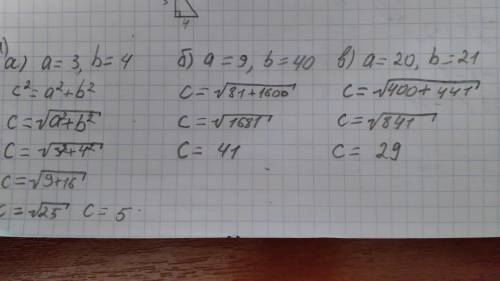 3
4
1)
а) a = 3, b = 4
c² = a² + b²
c = √a² + b²
c = √3² + 4²
c = √9 + 16
c = √25 c = 5
б) a = 9, b = 40
c = √81 + 1600
c = √1681
c = 41
в) a = 20, b = 21
c = √400 + 441
c = √841
c = 29